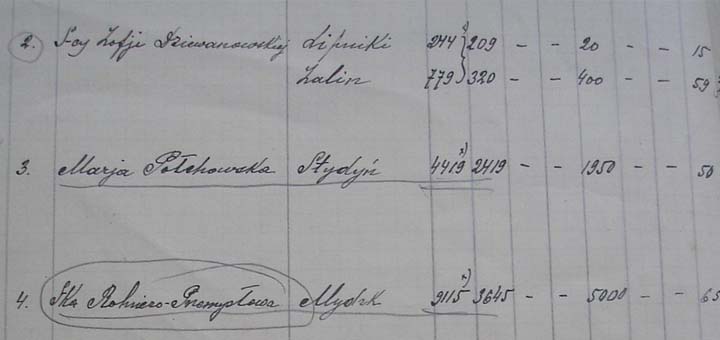 2. S-cy Zofji Dziewanowskiej Lipniki 244 x) 209 - - 20 - - 15
Zalin 779 320 - - 400 - - 59
3. Marja Połchowska Stydyń 4419 x) 2419 - - 1950 - - 50
4. Ska Rolniczo-Przemysłowa Mydzk 9115 x) 3645 - - 5000 - - 65